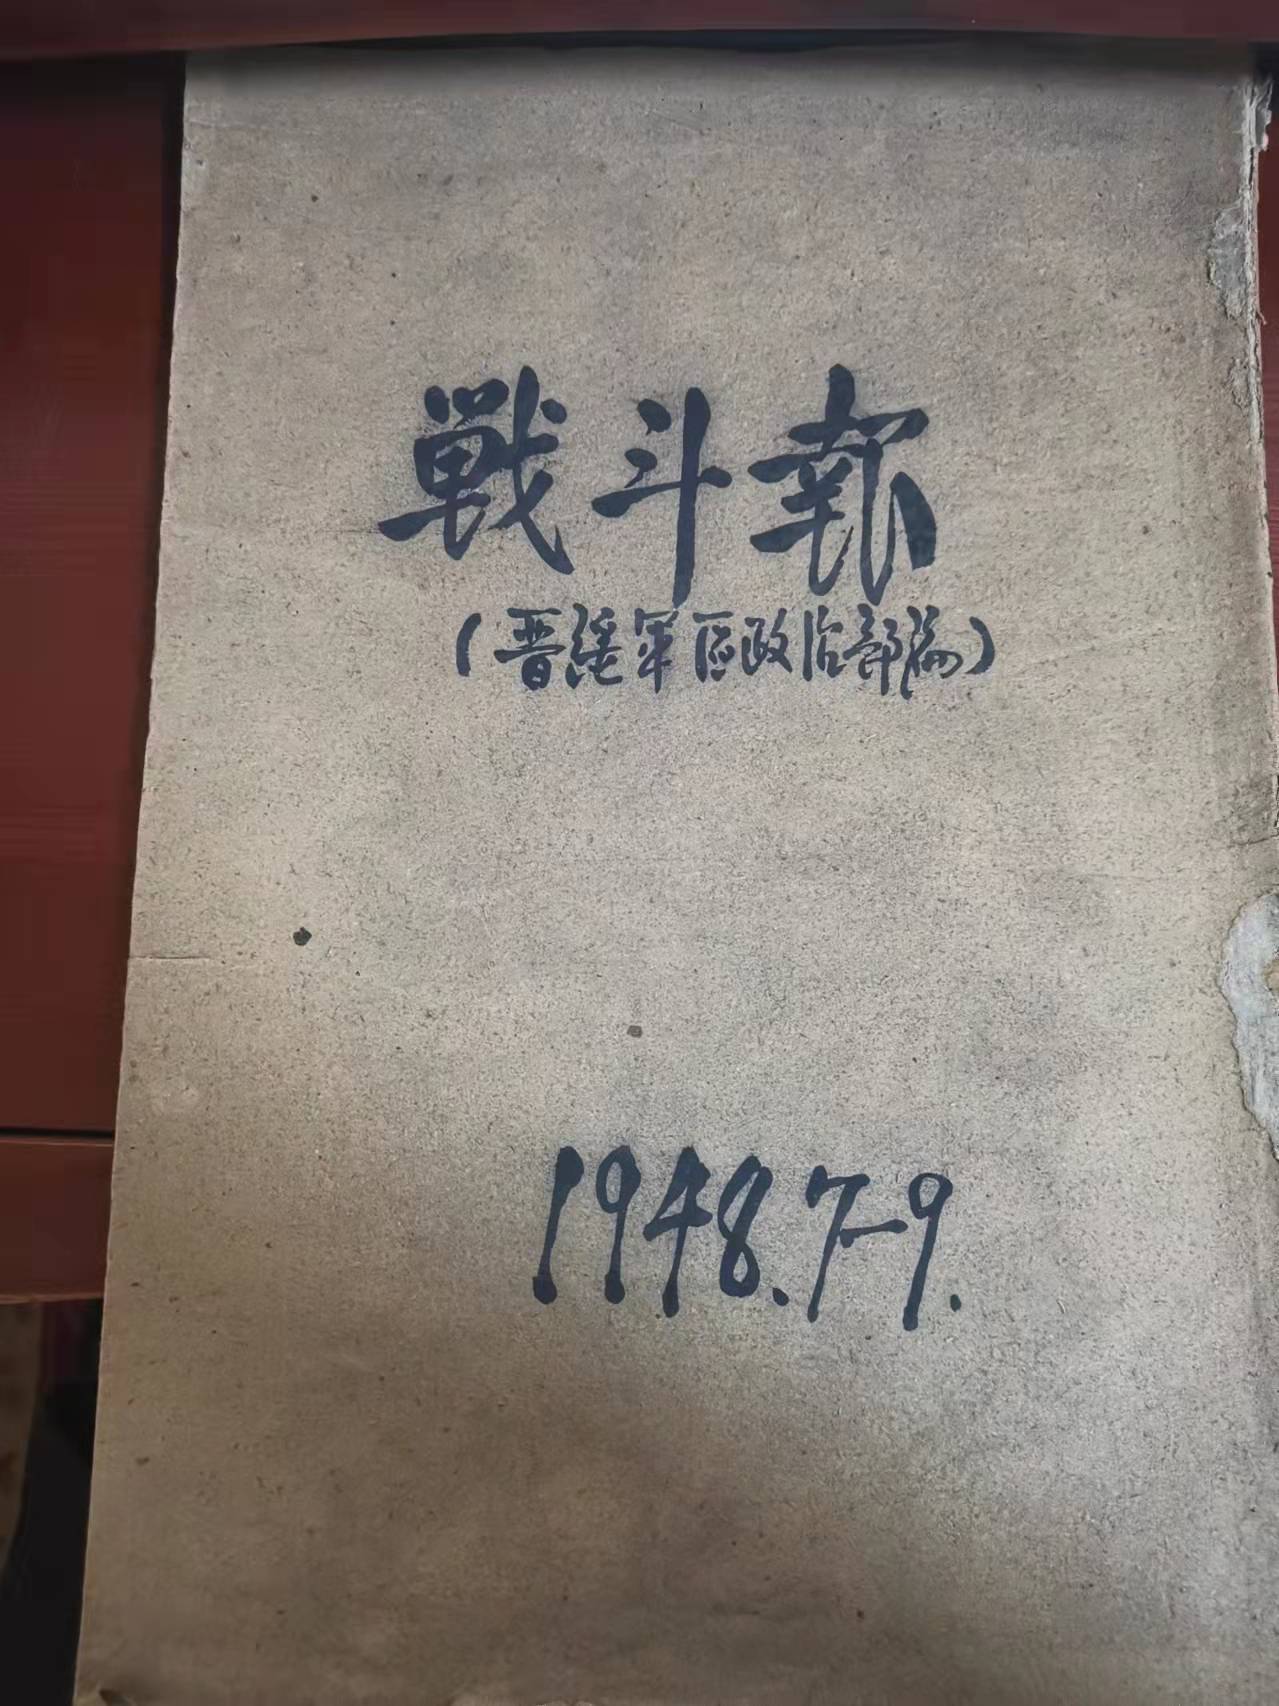 戰斗報
(晋绥军區政治部编)
1948.7-9.